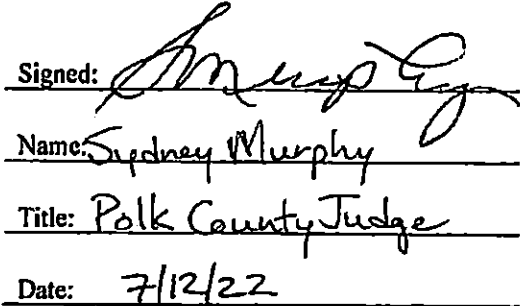 Signed:
Name: Sydney Murphy
Title: Polk County Judge
Date: 7/12/22